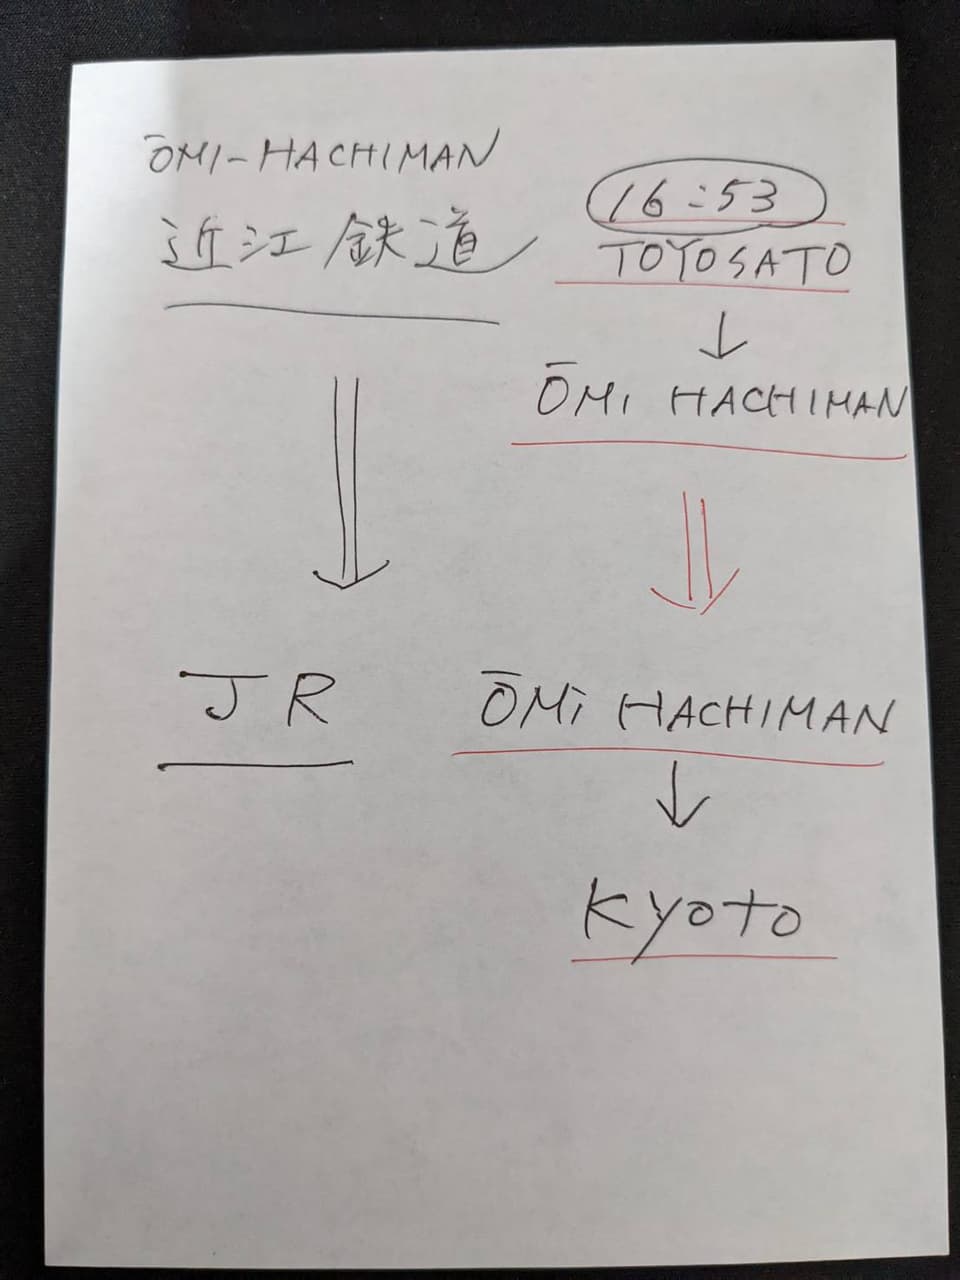 ŌMI-HACHIMAN
近江鉄道
16:53
TOYOSATO
↓
ŌMI HACHIMAN
⇓
⇓
JR
ŌMi HACHIMAN
↓
Kyoto